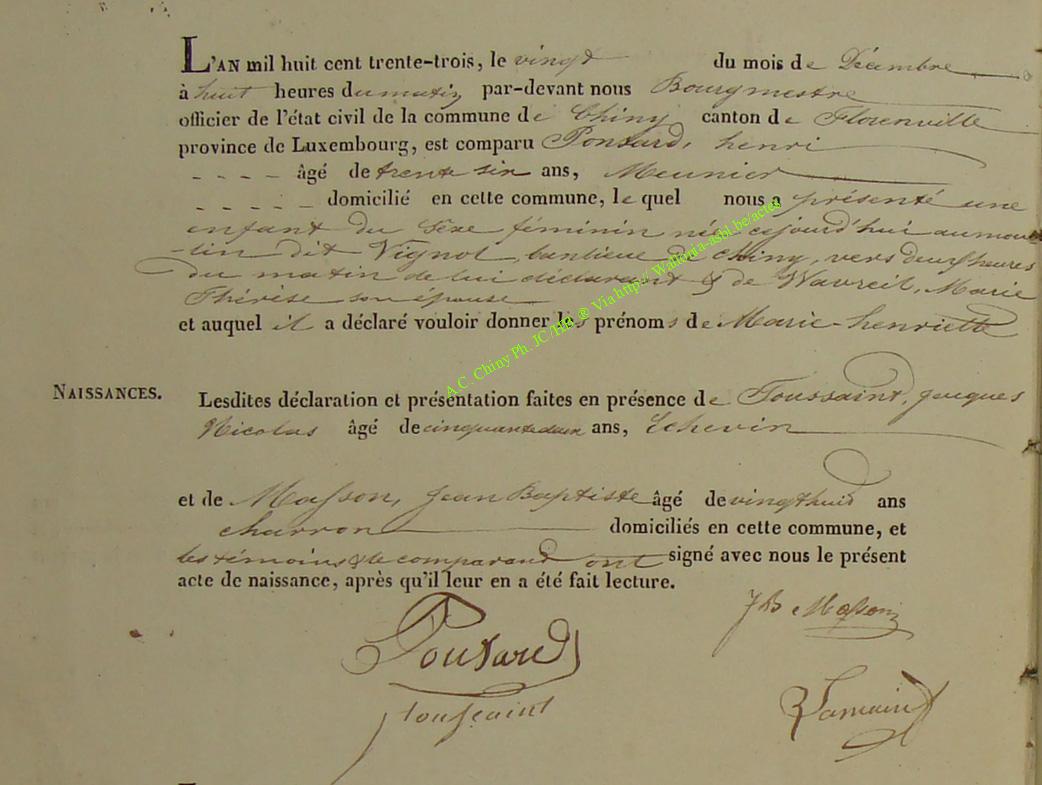 L'AN mil huit cent trente-trois, le vingt du mois de Décembre
à huit heures du matin par-devant nous Bourgmestre
officier de l'état civil de la commune de Chiny canton de Florenville
province de Luxembourg, est comparu Ponsard, henri
âgé de trente six ans, Meunier
domicilié en cette commune, le quel nous a présenté une
enfant du sexe féminin née cejourd'hui au mou
-lin dit Vignol, banlieue de Chiny, vers deux heures
du matin de lui déclarant & de Wavreil, Marie
Thérèse son épouse
et auquel il a déclaré vouloir donner les prénoms de Marie-henriette
NAISSANCES.
Lesdites déclaration et présentation faites en présence de Toussaint, Jacques
Nicolas âgé de cinquante deux ans, Echevin
et de Masson, Jean Baptiste âgé de vingt huid ans
charron domiciliés en cette commune, et
les témoins & le comparand ont signé avec nous le présent
acte de naissance, après qu'il leur en a été fait lecture.
JB Masson
Ponsard
Toussaint
A.C. Chiny Ph. JC /HB ® Via http:// Wallonia-asbl.be/actes